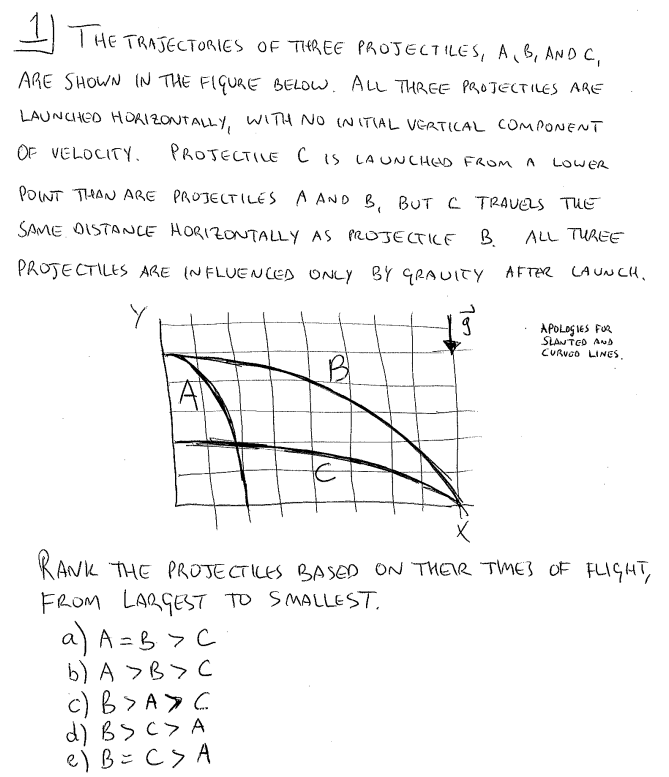 1) THE TRAJECTORIES OF THREE PROJECTILES, A, B, AND C,
ARE SHOWN IN THE FIGURE BELOW. ALL THREE PROJECTILES ARE
LAUNCHED HORIZONTALLY, WITH NO INITIAL VERTICAL COMPONENT
OF VELOCITY. PROJECTILE C IS LAUNCHED FROM A LOWER
POINT THAN ARE PROJECTILES A AND B, BUT C TRAVELS THE
SAME DISTANCE HORIZONTALLY AS PROJECTILE B. ALL THREE
PROJECTILES ARE INFLUENCED ONLY BY GRAVITY AFTER LAUNCH.
Y
g
APOLOGIES FOR
SLANTED AND
CURVED LINES.
B
A
C
X
RANK THE PROJECTILES BASED ON THEIR TIMES OF FLIGHT,
FROM LARGEST TO SMALLEST.
a) A = B > C
b) A > B > C
c) B > A > C
d) B > C > A
e) B = C > A